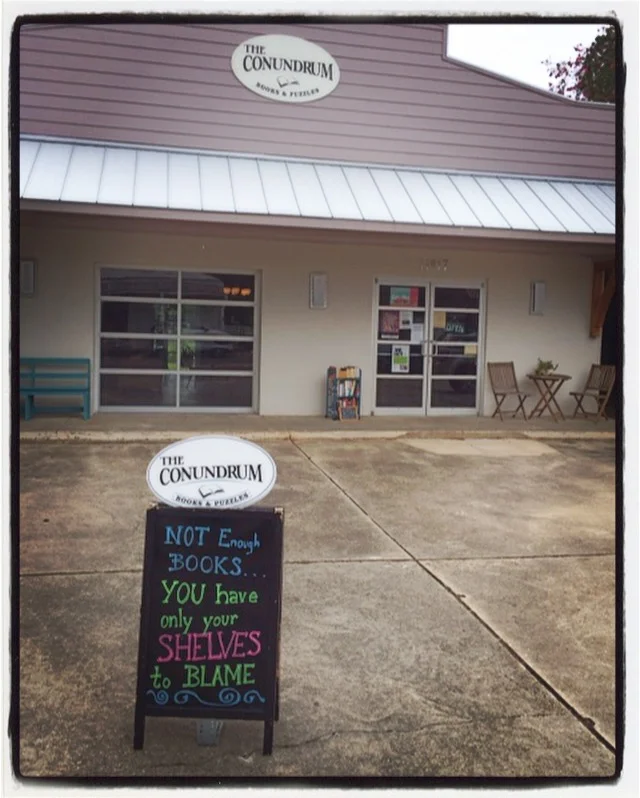 THE
CONUNDRUM
BOOKS & PUZZLES
OPEN
THE
CONUNDRUM
BOOKS & PUZZLES
NOT Enough
BOOKS...
YOU have
only your
SHELVES
to BLAME